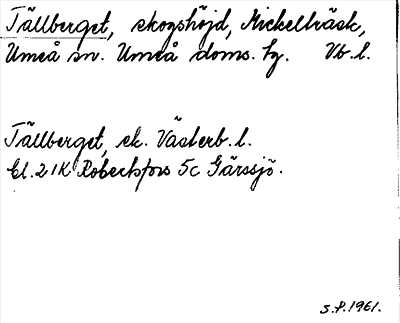 Tällberget, skogshöjd, Mickelträsk,
Umeå sn. Umeå doms. hg. Vb. l.
Tällberget, sk. Västerb. l.
Bl. 21K Robertsfors 5c Gärssjö.
S.P. 1961.